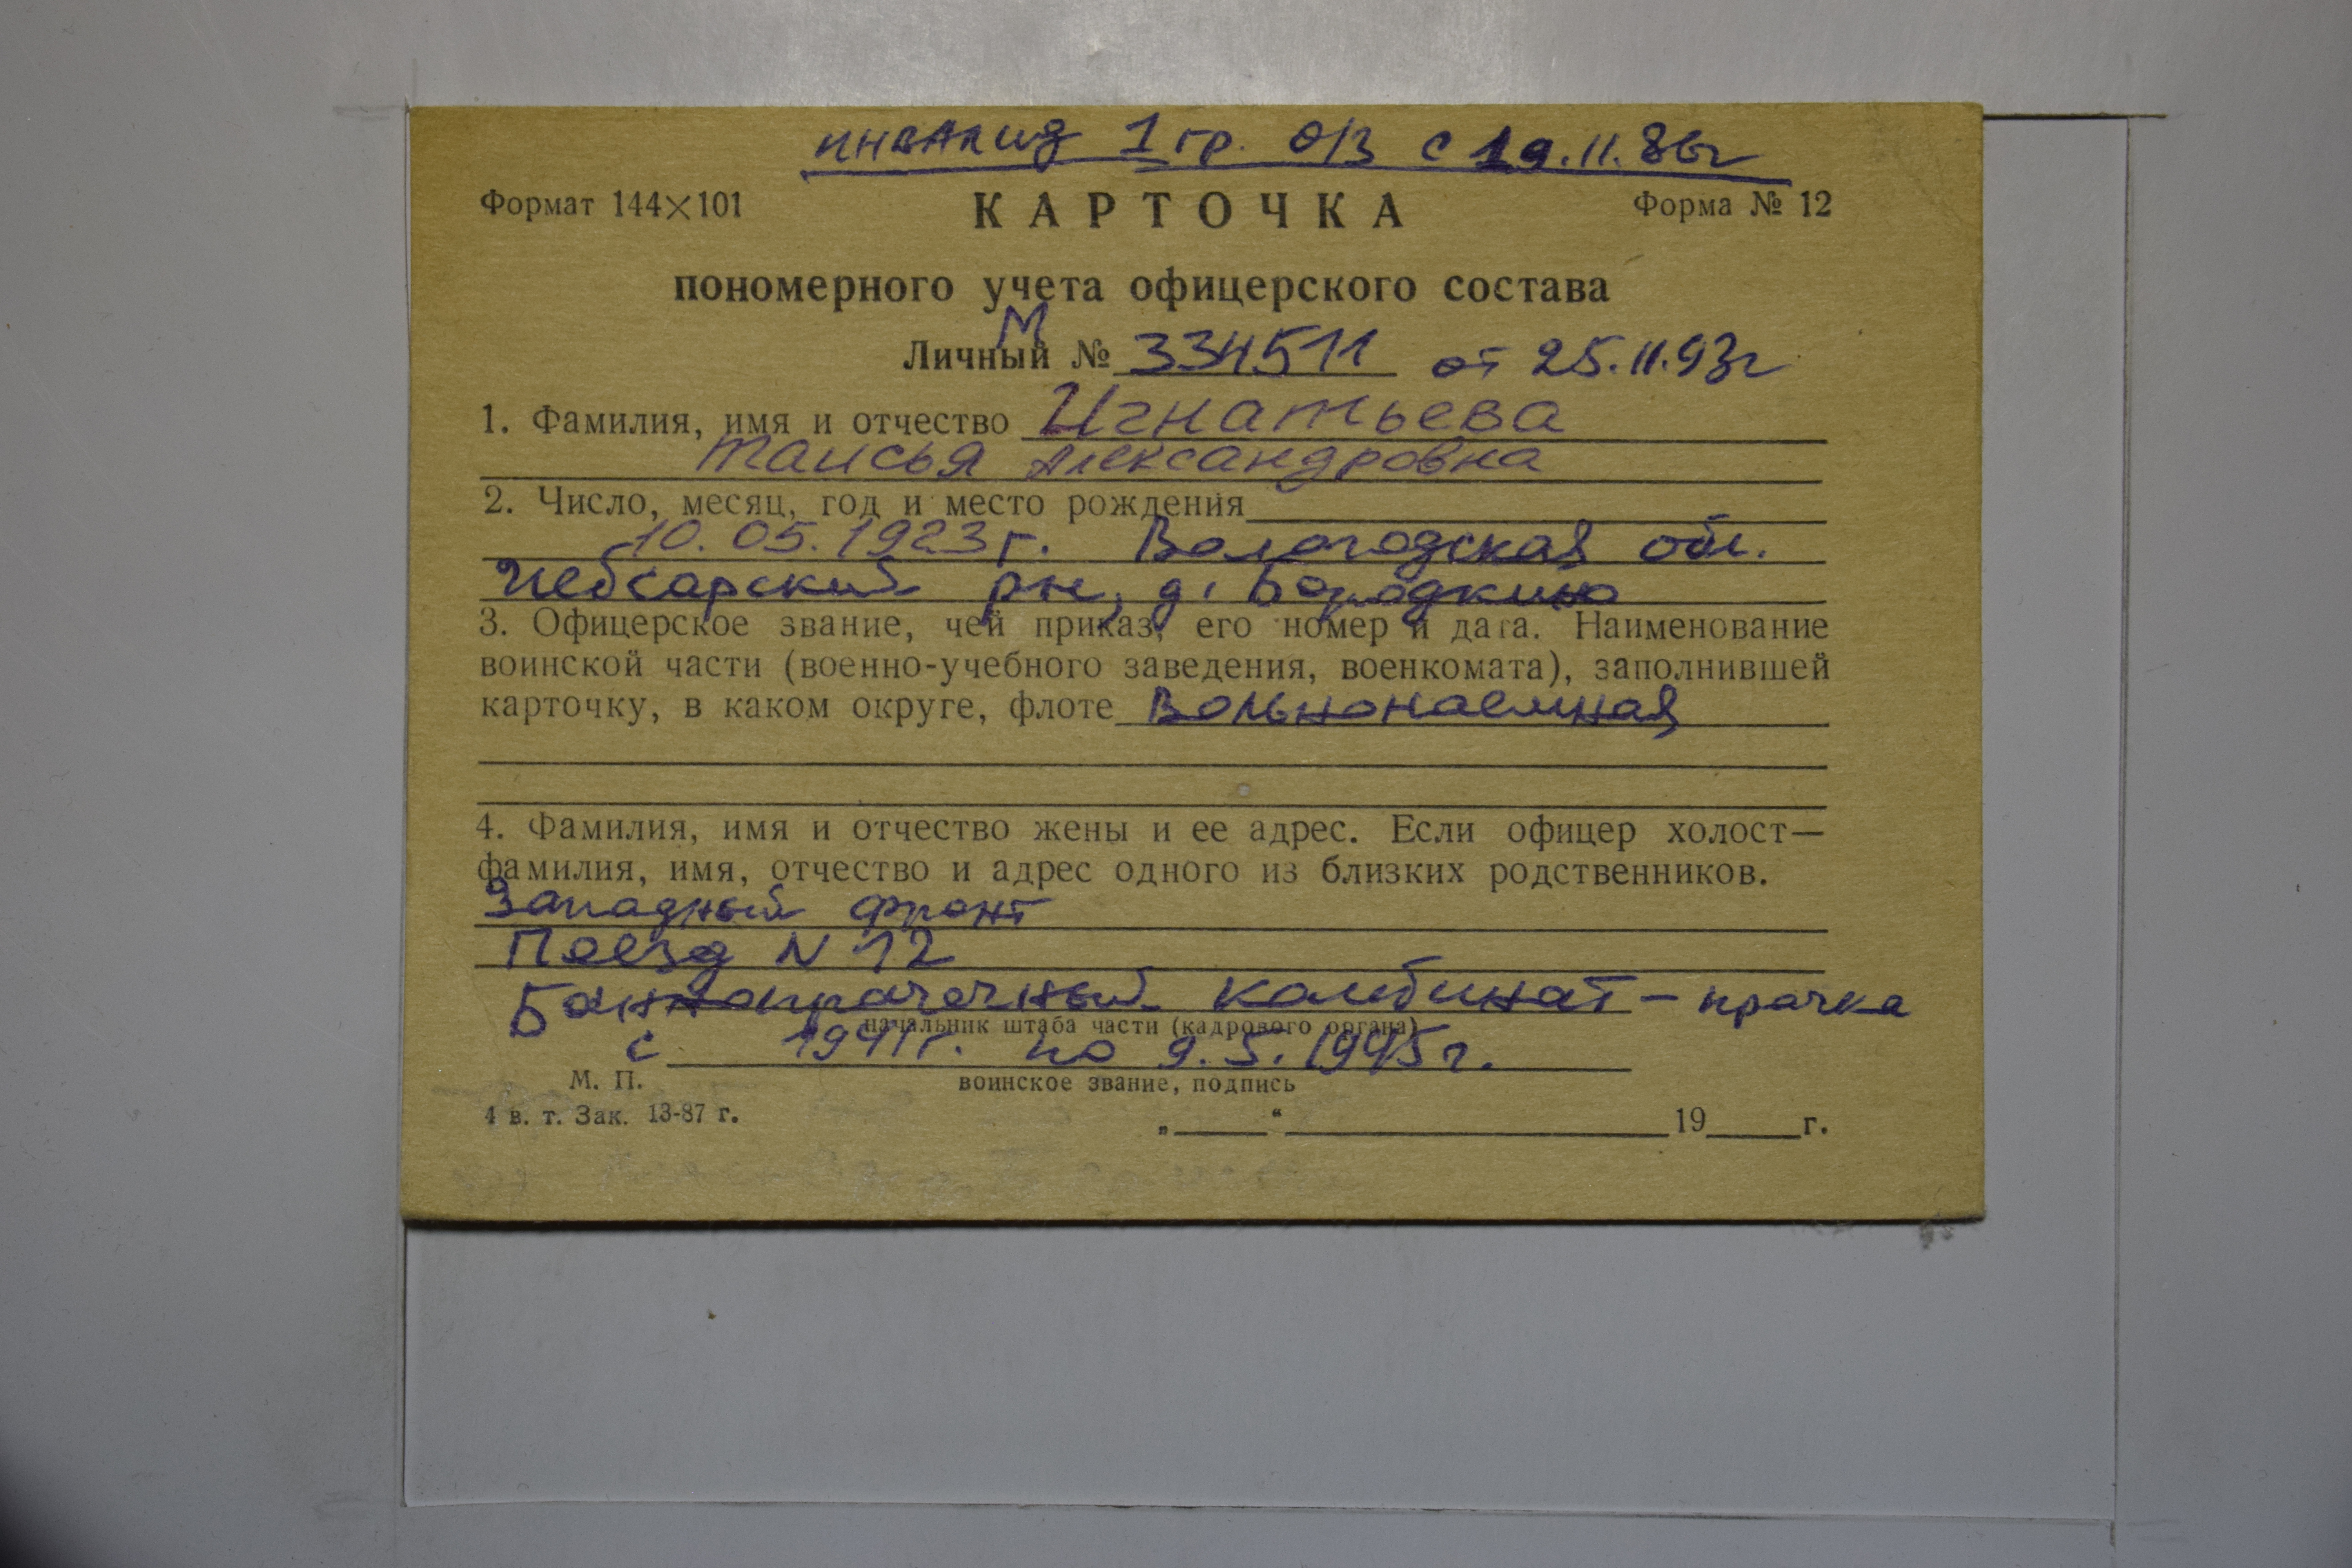 инвалид 1 гр. О/З с 19.11.86г
Формат 144×101 КАРТОЧКА Форма № 12
пономерного учета офицерского состава
М
Личный № 334511 от 25.11.93г
1. Фамилия, имя и отчество Игнатьева
Таисья Александровна
2. Число, месяц, год и место рождения
10.05.1923г. Вологодская обл.
Чебсарский рн, д. Бородкино
3. Офицерское звание, чей приказ, его номер и дата. Наименование
воинской части (военно-учебного заведения, военкомата), заполнившей
карточку, в каком округе, флоте Вольнонаемная
4. Фамилия, имя и отчество жены и ее адрес. Если офицер холост—
фамилия, имя, отчество и адрес одного из близких родственников.
Западный фронт
Поезд N 12
Баннопрачечный комбинат – прачка
начальник штаба части (кадрового органа)
с 1941г. по 9.5.1945г.
М. П. воинское звание, подпись
4 в. т. Зак. 13-87 г.
„ “ 19 г.